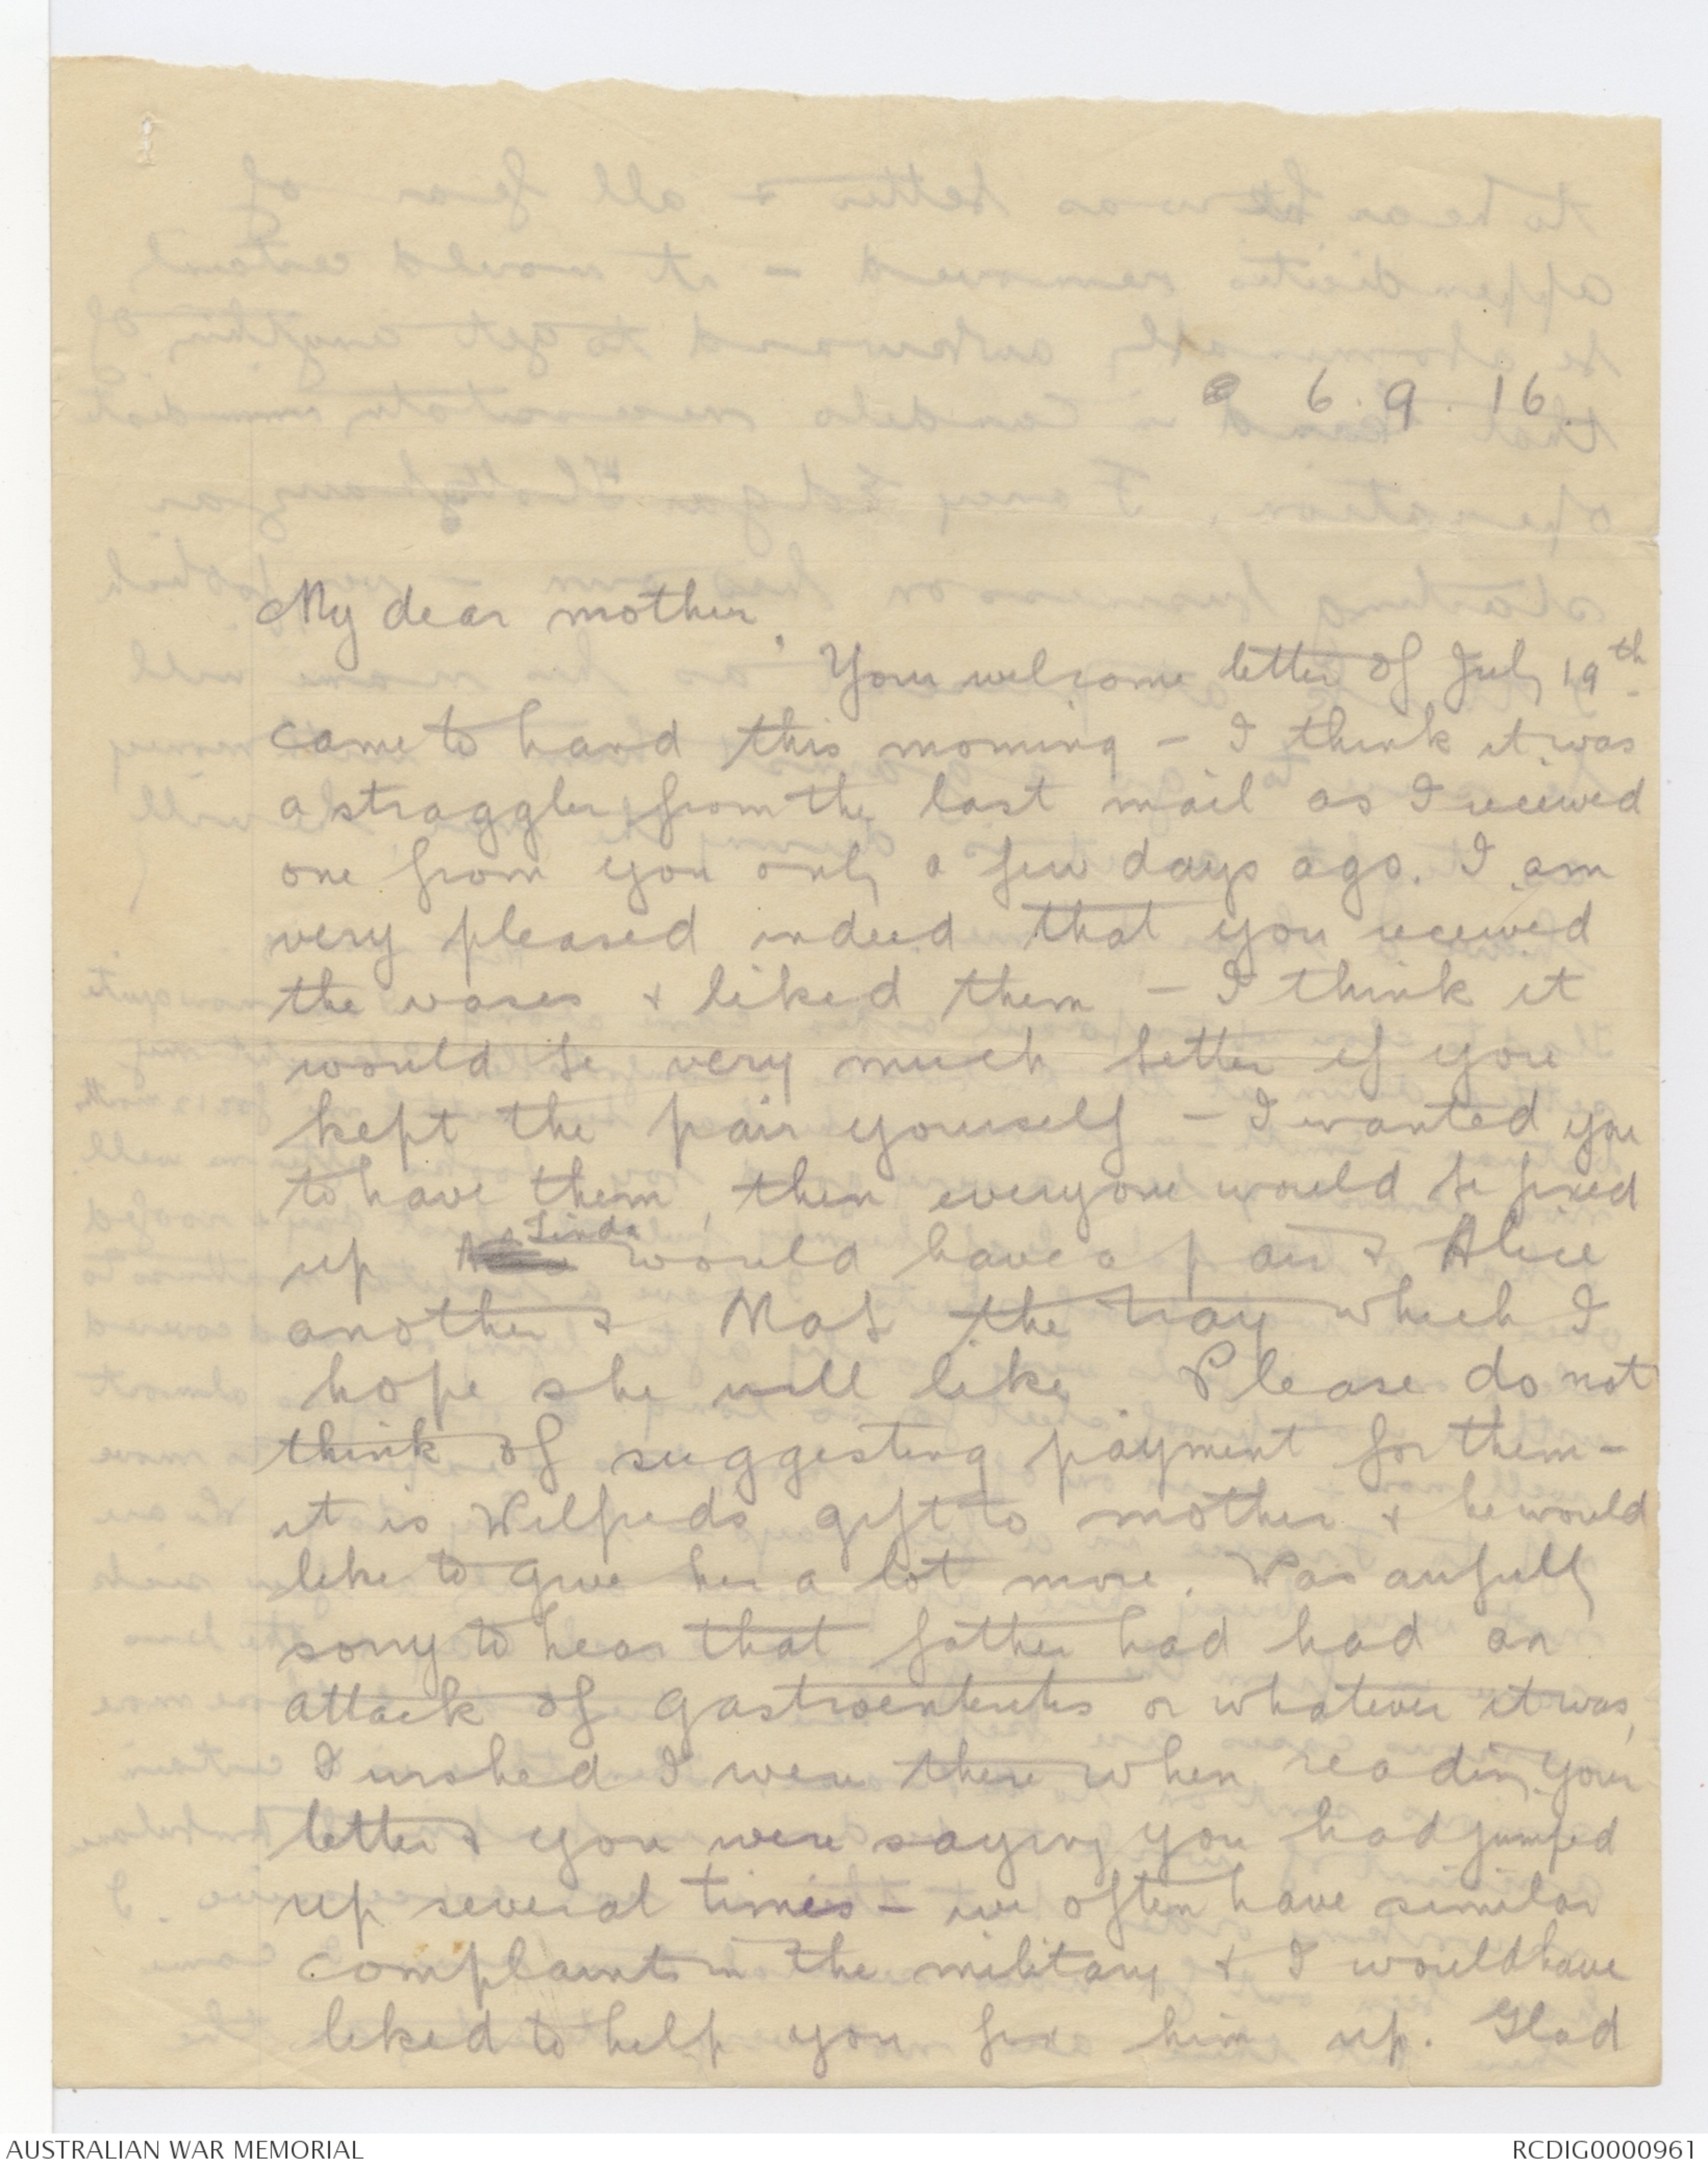 6.9.16.
My dear mother,
Your welcome letter of July 19th.
came to hand this morning - I think it was
a straggler from the last mail as I received
one from you only a few days ago. I am
very pleased indeed that you received
the vases & liked them - I think it
would be very much better if you
kept the pair yourself - I wanted you
to have them, then everyone would be fixed
up Linda would have a pair & Alice
another & Mab the tray which I
hope she will like. Please do not
think of suggesting payment for them -
it is Wilfreds gift to mother & he would
like to give her a lot more. Was awfully
sorry to hear that father had had an
attack of gastroenteritis or whatever it was,
I wished I were there when reading your
letter & you were saying you had jumped
up several times - we often have similar
complaints in the military & I would have
liked to help you fix him up. Glad
AUSTRALIAN WAR MEMORIAL
RCDIG0000961